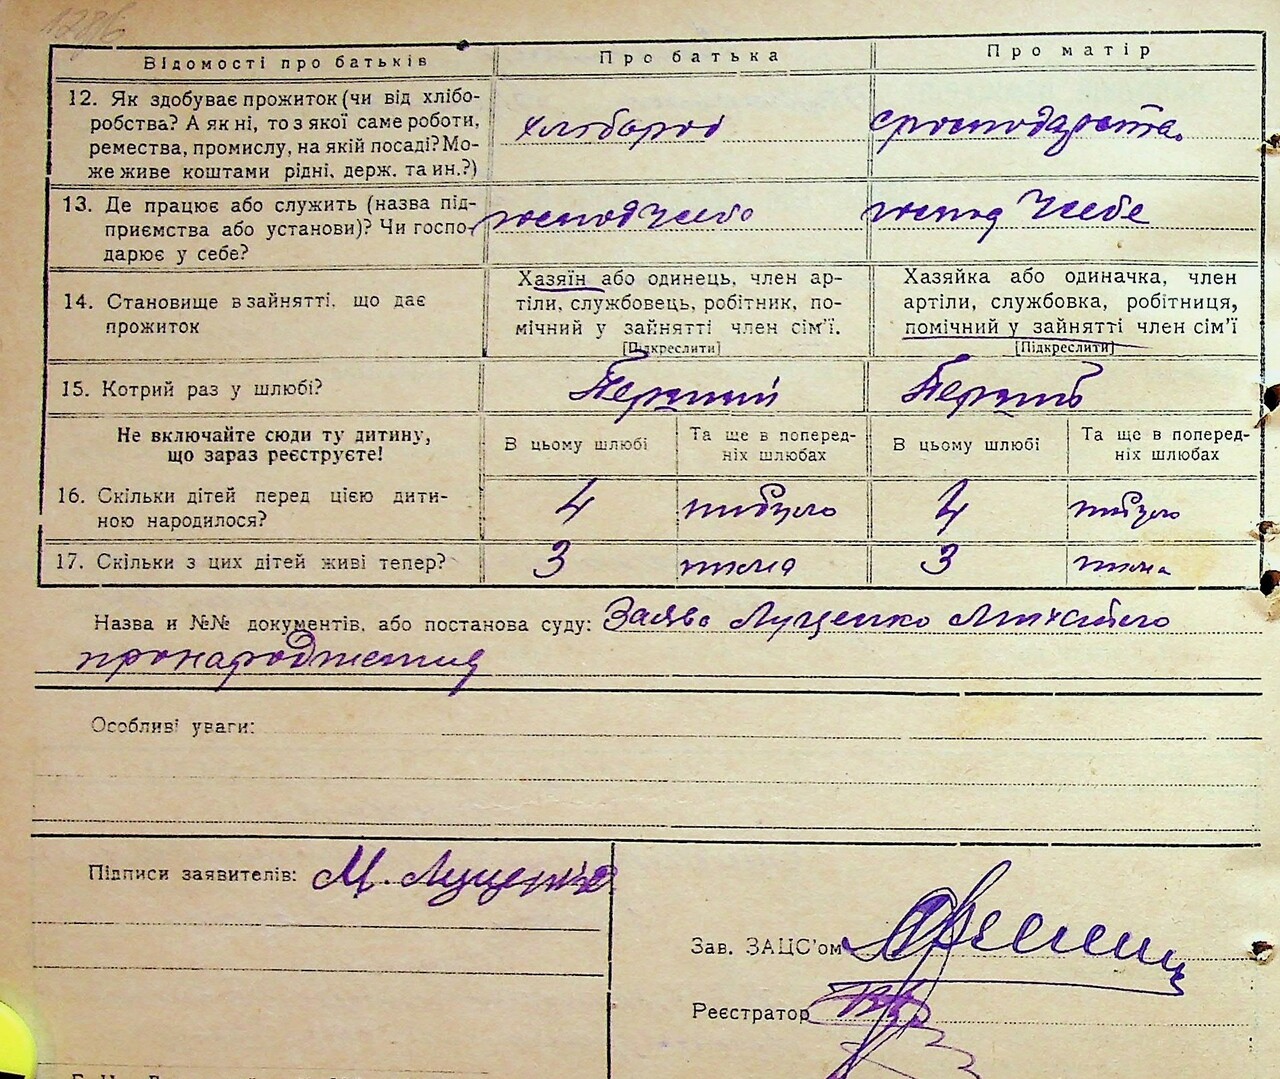 1286
Відомості про батьків
Про батька
Про матір
12. Як здобуває прожиток (чи від хлібо-
робства? А як ні, то з якої саме роботи,
ремества, промислу, на якій посаді? Мо-
же живе коштами рідні, держ. та ин.?)
хлібороб
13. Де працює або служить (назва під-
приємства або установи)? Чи госпо-
дарює у себе?
господ у себе
господ у себе
14. Становище в зайнятті, що дає
прожиток
Хазяїн або одинець, член ар-
тіли, службовець, робітник, по-
мічний у зайнятті член сім'ї.
[Підкреслити]
Хазяйка або одиначка, член
артіли, службовка, робітниця,
помічний у зайнятті член сім'ї
[Підкреслити]
15. Котрий раз у шлюбі?
Перший
Не включайте сюди ту дитину,
що зараз реєструєте!
В цьому шлюбі
Та ще в поперед-
ніх шлюбах
В цьому шлюбі
Та ще в поперед-
ніх шлюбах
16. Скільки дітей перед цією дити-
ною народилося?
4
небуло
4
небуло
17. Скільки з цих дітей живі тепер?
3
нема
3
нема
Назва и №№ документів, або постанова суду: Заява Луценко Михайло
про народження
Особливі уваги:
Підписи заявителів: М. Луценко
Зав. ЗАЦС'ом
Реєстратор